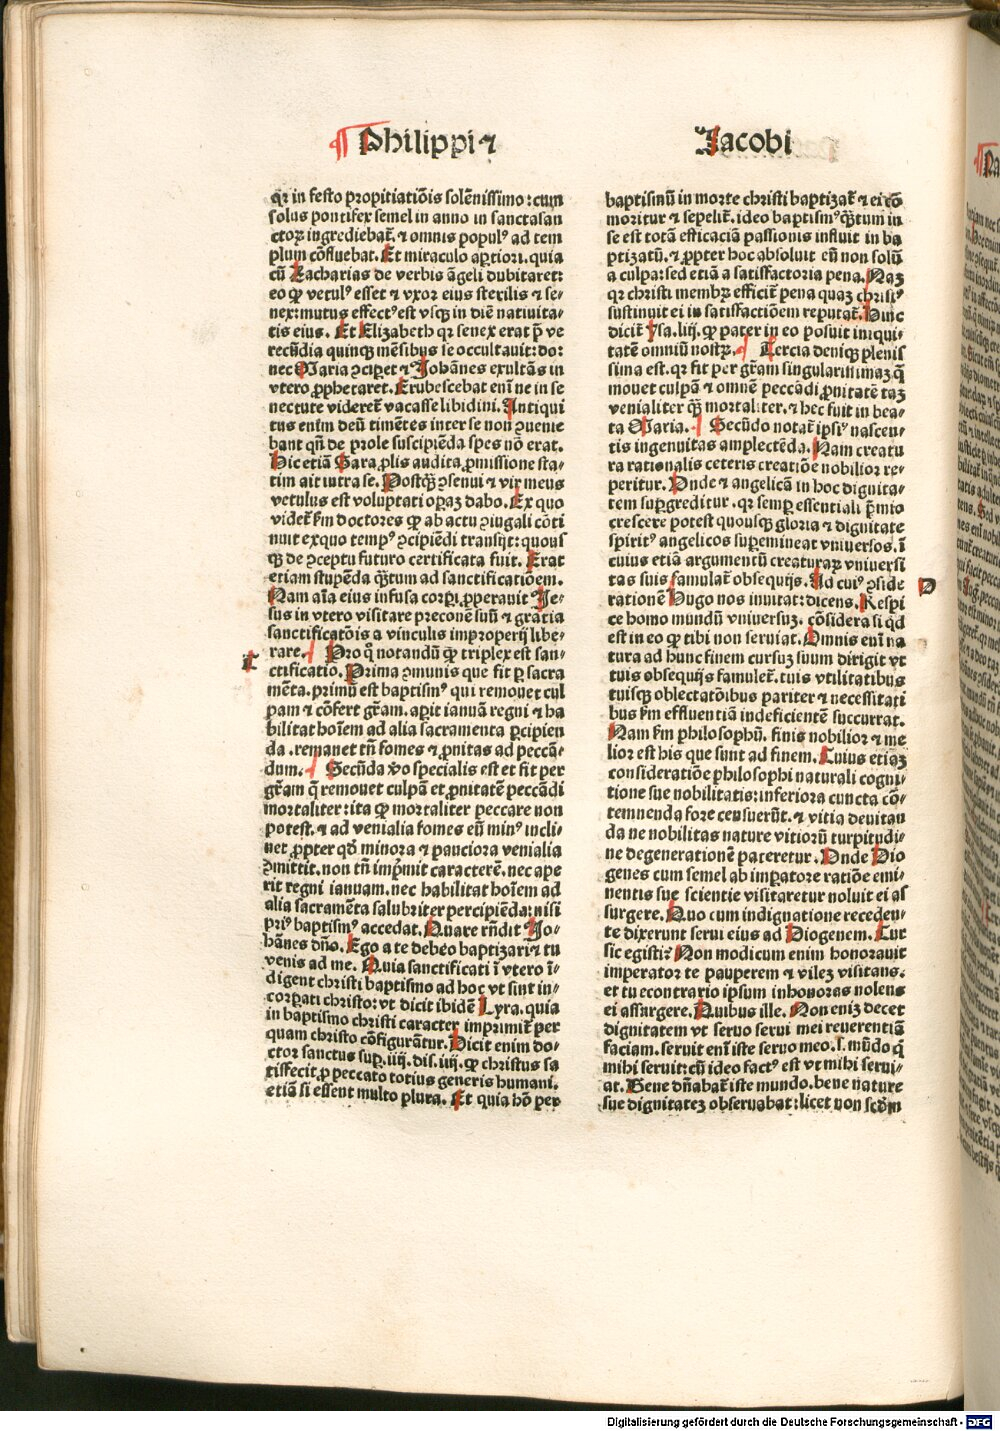 ¶ Philippi ⁊ Jacobi
qꝛ in festo propitiatiōis solēnissimo: cum
solus pontifex semel in anno in sanctasan
ctoꝝ ingrediebat̄. ⁊ omnis popul⁹ ad tem
plum cōfluebat. Et miraculo aptiori. quia
cū Zacharias de verbis āgeli dubitaret:
eo ꝙ vetul⁹ esset ⁊ vxor eius sterilis ⁊ se-
nex: mutus effect⁹ est vsqꝫ in diē natiuita-
tis eius. Et Elizabeth qꝛ senex erat p̄ ve
recūdia quinqꝫ mēsibus se occultauit: do-
nec Maria ↄcipet ⁊ Johānes exultās in
vtero ꝓphetaret. Erubescebat enī ne in se
nectute videret̄ vacasse libidini. Antiqui
tus enim deū timētes inter se non ↄuenie
bant qn̄ de prole suscipiēda spes nō erat.
Hic etiā Sara ꝓlis audita ꝓmissione sta-
tim ait intra se. Postqꝫ ↄsenui ⁊ vir meus
vetulus est voluptati opaꝫ dabo. Ex quo
videt̄ ẜm doctores ꝙ ab actu ↄiugali cōti
nuit exquo temp⁹ ↄcipiēdi transijt: quous
qꝫ de ↄceptu futuro certificata fuit. Erat
etiam stupēda qꝫtum ad sanctificatiōem.
Nam aīa eius infusa corpi ꝓperauit Je-
sus in vtero visitare preconē suū ⁊ gratia
sanctificatōis a vinculis improperij libe-
rare. Pro q̄ notandū ꝙ triplex est san-
T
ctificatio. Prima ↄmunis que fit ꝑ sacra
mēta. primū est baptism⁹ qui remouet cul
pam ⁊ cōfert gr̄am. apit ianuā regni ⁊ ha
bilitat hoīem ad alia sacramenta ꝑcipien
da. remanet tn̄ fomes ⁊ ꝓnitas ad peccā-
dum. Secūda v̄o specialis est et fit per
gr̄am q̄ remouet culpā et ꝓnitatē peccādi
mortaliter: ita ꝙ mortaliter peccare non
potest. ⁊ ad venialia fomes eū min⁹ incli-
net ꝓpter qd̄ minora ⁊ pauciora venialia
ↄmittit. non tn̄ imp̄mit caracterē. nec ape
rit regni ianuam. nec habilitat hoīem ad
alia sacramēta salubriter percipiēda: nisi
pri⁹ baptism⁹ accedat. Quare rn̄dit Jo-
hānes dn̄o. Ego a te debeo baptizari ⁊ tu
venis ad me. Quia sanctificati ī vtero ī-
digent christi baptismo ad hoc vt sint in-
corpati christo: vt dicit ibidē Lyra. quia
in baptismo christi caracter imprimit̄ per
quam christo cōfigurātur. Dicit enim do-
ctor sanctus sup. iiij. dis. iiij. ꝙ christus sa
tisfecit ꝓ peccato totius generis humani.
etiā si essent multo plura. Et quia hō per
baptismū in morte christi baptizat̄ ⁊ ei cō
moritur ⁊ sepelit̄. ideo baptism⁹ qꝫtum in
se est totā efficaciā passionis influit in ba
ptizatū. ⁊ ꝓpter hoc absoluit eū non solū
a culpa: sed etiā a satisfactoria pena. Naꝫ
qꝛ christi membꝝ efficit̄ pena quaꝫ christ⁹
sustinuit ei in satisfactiōem reputat̄. Hinc
dicit̄ Ysa. liij. ꝙ pater in eo posuit iniqui-
tatē omniū nostꝝ. Tercia deniqꝫ plenis
sima est. qꝛ fit per gr̄am singularissimaꝫ q̄
mouet culpā ⁊ omnē peccādi ꝓnitatē taꝫ
venialiter qꝫ mortaliter. ⁊ hec fuit in bea-
ta Maria. Secūdo notat̄ ipsi⁹ nascen-
tis ingenuitas amplectēda. Nam creatu
ra rationalis ceteris creatiōe nobilior re-
peritur. Unde ⁊ angelicā in hoc dignita-
tem supgreditur. qꝛ semp essentiali p̄mio
crescere potest quousqꝫ gloria ⁊ dignitate
spirit⁹ angelicos supemineat vniuersos. ī
cuius etiā argumentū creaturaꝝ vniuersi
tas suis famulat̄ obsequijs. Ad cui⁹ ↄside
D
rationē Hugo nos inuitat: dicens. Respi
ce homo mundū vniuersuꝫ. cōsidera si qd
est in eo qꝛ tibi non seruiat. Omnis enī na
tura ad hunc finem cursuꝫ suum dirigit vt
tuis obsequijs famulet̄. tuis vtilitatibus
tuisqꝫ oblectatōibus pariter ⁊ necessitati
bus ẜm effluentiā indeficientē succurrat.
Nam ẜm philosophū. finis nobilior ⁊ me
lior est his que sunt ad finem. Cuius etiaꝫ
consideratiōe philosophi naturali cogni-
tione sue nobilitatis: inferiora cuncta cō-
temnenda fore censuerūt. ⁊ vitia deuitan
da ne nobilitas nature vitiorū turpitudi-
ne degenerationē pateretur. Unde Dio
genes cum semel ab impatore ratiōe emi-
nentis sue scientie visitaretur noluit ei as
surgere. Quo cum indignatione receden-
te dixerunt serui eius ad Diogenem. Cur
sic egisti? Non modicum enim honorauit
imperator te pauperem ⁊ vileꝫ visitans.
et tu econtrario ipsum inhonoras nolens
ei assurgere. Quibus ille. Non eniꝫ decet
dignitatem vt seruo serui mei reuerentiā
faciam. seruit enī iste seruo meo. s. mūdo q̄
mihi seruit: cū ideo fact⁹ est vt mihi serui-
at. Bene dn̄abat̄ iste mundo. bene nature
sue dignitateꝫ obseruabat: licet non scd̄m
Digitalisierung gefördert durch die Deutsche Forschungsgemeinschaft - DFG